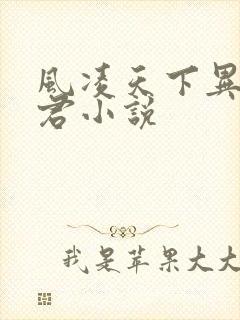 風凌天下異
君小說
我是苹果大大